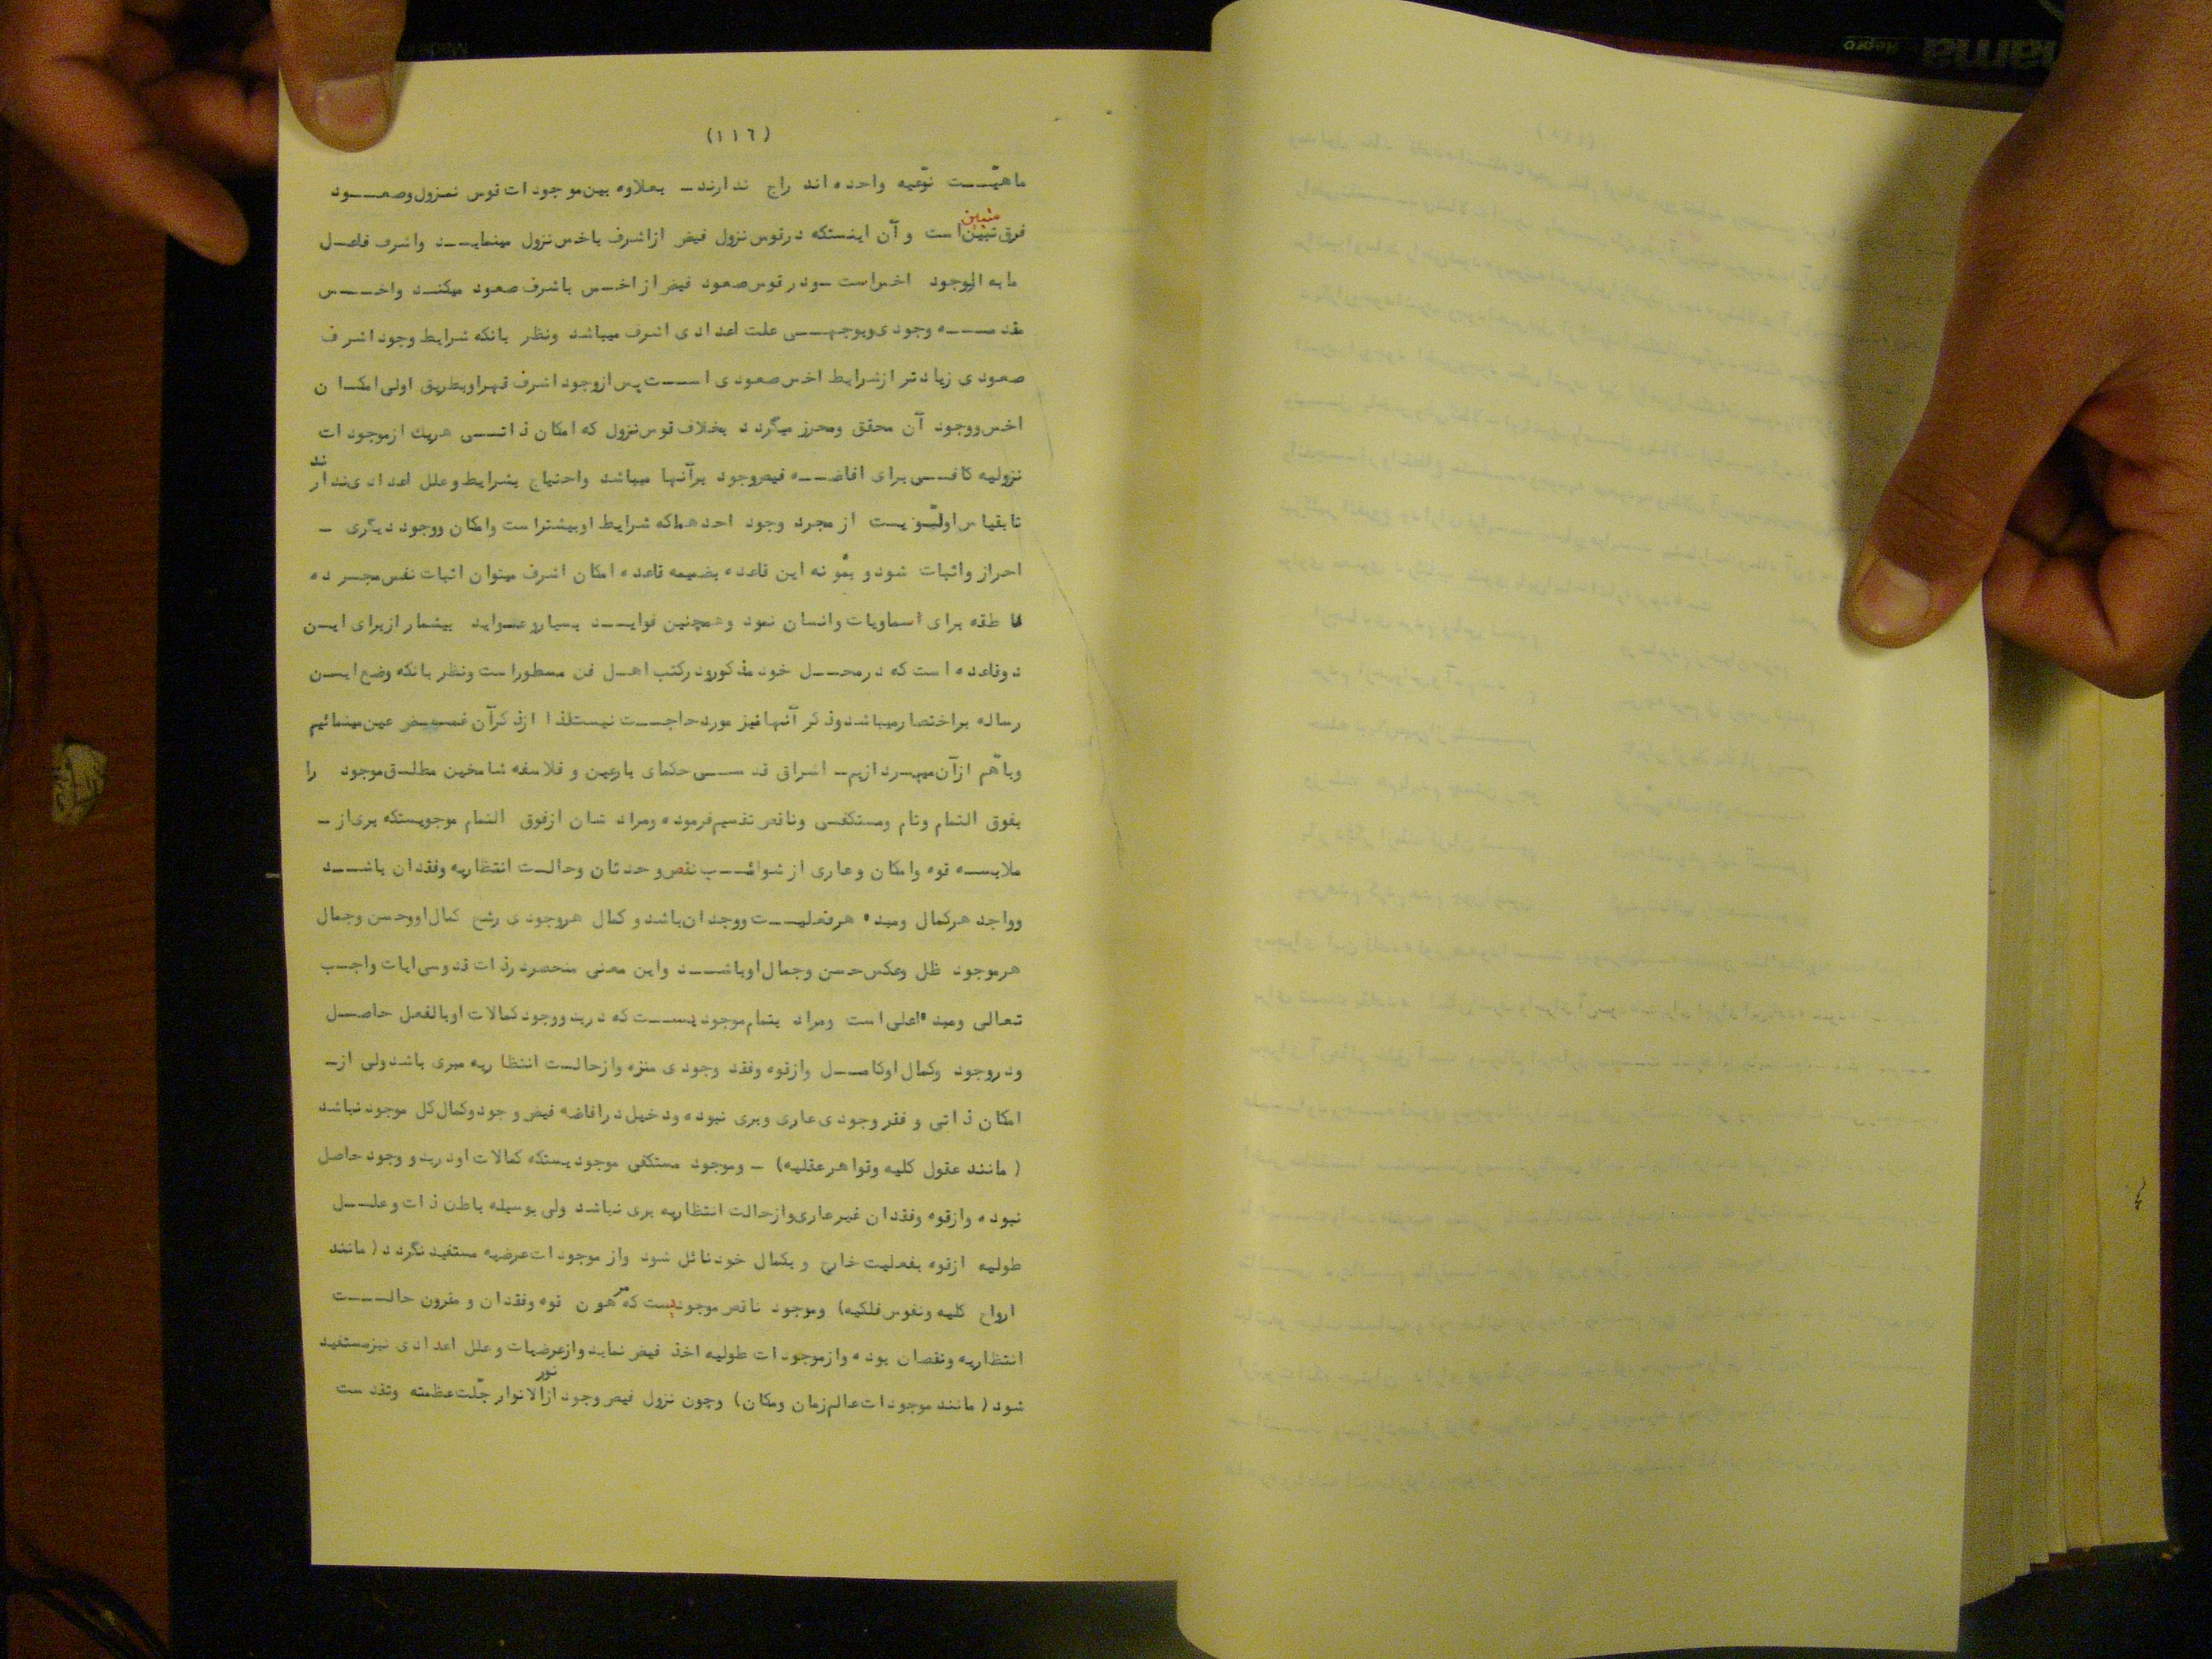 (١١٦)
ماهیّت نوّعیه واحده اند راج ندارند – بعلاوه بین موجودات قوس نمزول وصعود
متبین
فرق تبیّن است و آن اینستکه درقوس نزول فیض ازاشرف باخس نزول مینماید واشرف فاعل
مابه الوجود اخس است – ودر قوس صعود فیض از اخس باشرف صعود میکند واخس
مقدمه وجودی وبوجهی علت اعدادی اشرف میباشد ونظر بانکه شرایط وجود اشرف
صعودی زیادتر ازشرایط اخس صعودی است پس ازوجود اشرف قهراوبطریق اولی امکان
اخس ووجود آن محقق ومحرز میگردد بخلاف قوس نزول که امکان ذاتی هریك ازموجودات
نزولیه کافی برای افاضه فیض وجود برآنها میباشد واحتیاج بشرایط وعلل اعدادی ندارند
تابقیاس اولیّویت از مجرد وجود احدهماکه شرایط اوبیشتراست وامکان ووجود دیگری –
احراز واثبات شود و بمُونه این قاعده بضمیمه قاعده امکان اشرف میتوان اثبات نفس مجرده
نا طقه برای اسماویات وانسان نمود وهمچنین فواید بسیاروعواید بیشمار ازبرای این
دوقاعده است که درمحل خود مذکورودرکتب اهل فن مسطوراست ونظر بانکه وضع این
رساله براختصارمیباشد وذکر آنهانیز موردحاجت نیست لذا ازذکرآن غمض عین مینمائیم
وباهّم ازآن میپردازیم – اشراق قدسی حکمای بارعین و فلاسفه شامخین مطلق موجود را
بفوق التمام وتام ومستکفی وناقص تقسیم فرموده ومراد شان ازفوق التمام موجویستکه بری از –
ملابسه قوه وامکان وعاری از شوائب نقص وحدثان وحالت انتظاریه وفقدان باشد
وواجد هرکمال ومبدء هرفعلیت ووجدان باشد و کمال هروجودی رشح کمال اووحسن وجمال
هرموجود ظل وعکس حسن وجمال اوباشد واین معنی منحصردرذات قدوسی ایات واجب
تعالی ومبدء اعلی است ومراد بتمام موجودیست که دربدووجود کمالات اوبالفعل حاصل
ودروجود وکمال اوکامل وازقوه وفقد وجودی منزه وازحالت انتظاریه مبری باشد ولی از –
امکان ذاتی و فقر وجودی عاری وبری نبوده ودخیل درافاضه فیض وجودوکمال کل موجودنباشد
(مانند عقول کلیه وقواهرعقلیه) – وموجود مستکفی موجودیستکه کمالات اودربدو وجود حاصل
نبوده وازقوه وفقدان غیرعاری وازحالت انتظاریه بری نباشد ولی بوسیله باطن ذات وعلل
طولیه ازقوه بفعلیت خارج و بکمال خودنائل شود واز موجودات عرضیه مستفید نگردد (مانند
ارواح کلیه ونفوس فلکیه) وموجود ناقص موجودیست که مرهون قوه وفقدان و مقرون حالت
انتظاریه ونقصان بوده وازموجودات طولیه اخذ فیض نماید وازعرضیات وعلل اعدادی نیزمستفید
شود (مانند موجودات عالم زمان ومکان) وچون نزول فیض وجود ازنورالانوار جلّت عظمته وتقدست